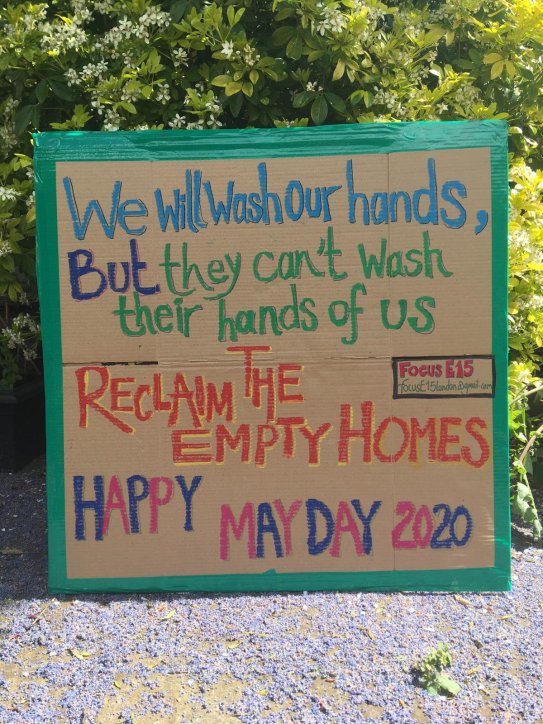 We Will Wash Our hands,
But they can't wash
their hands of us
RECLAIM THE
EMPTY HOMES
Focus E15
focusE15london@gmail.com
HAPPY MAY DAY 2020